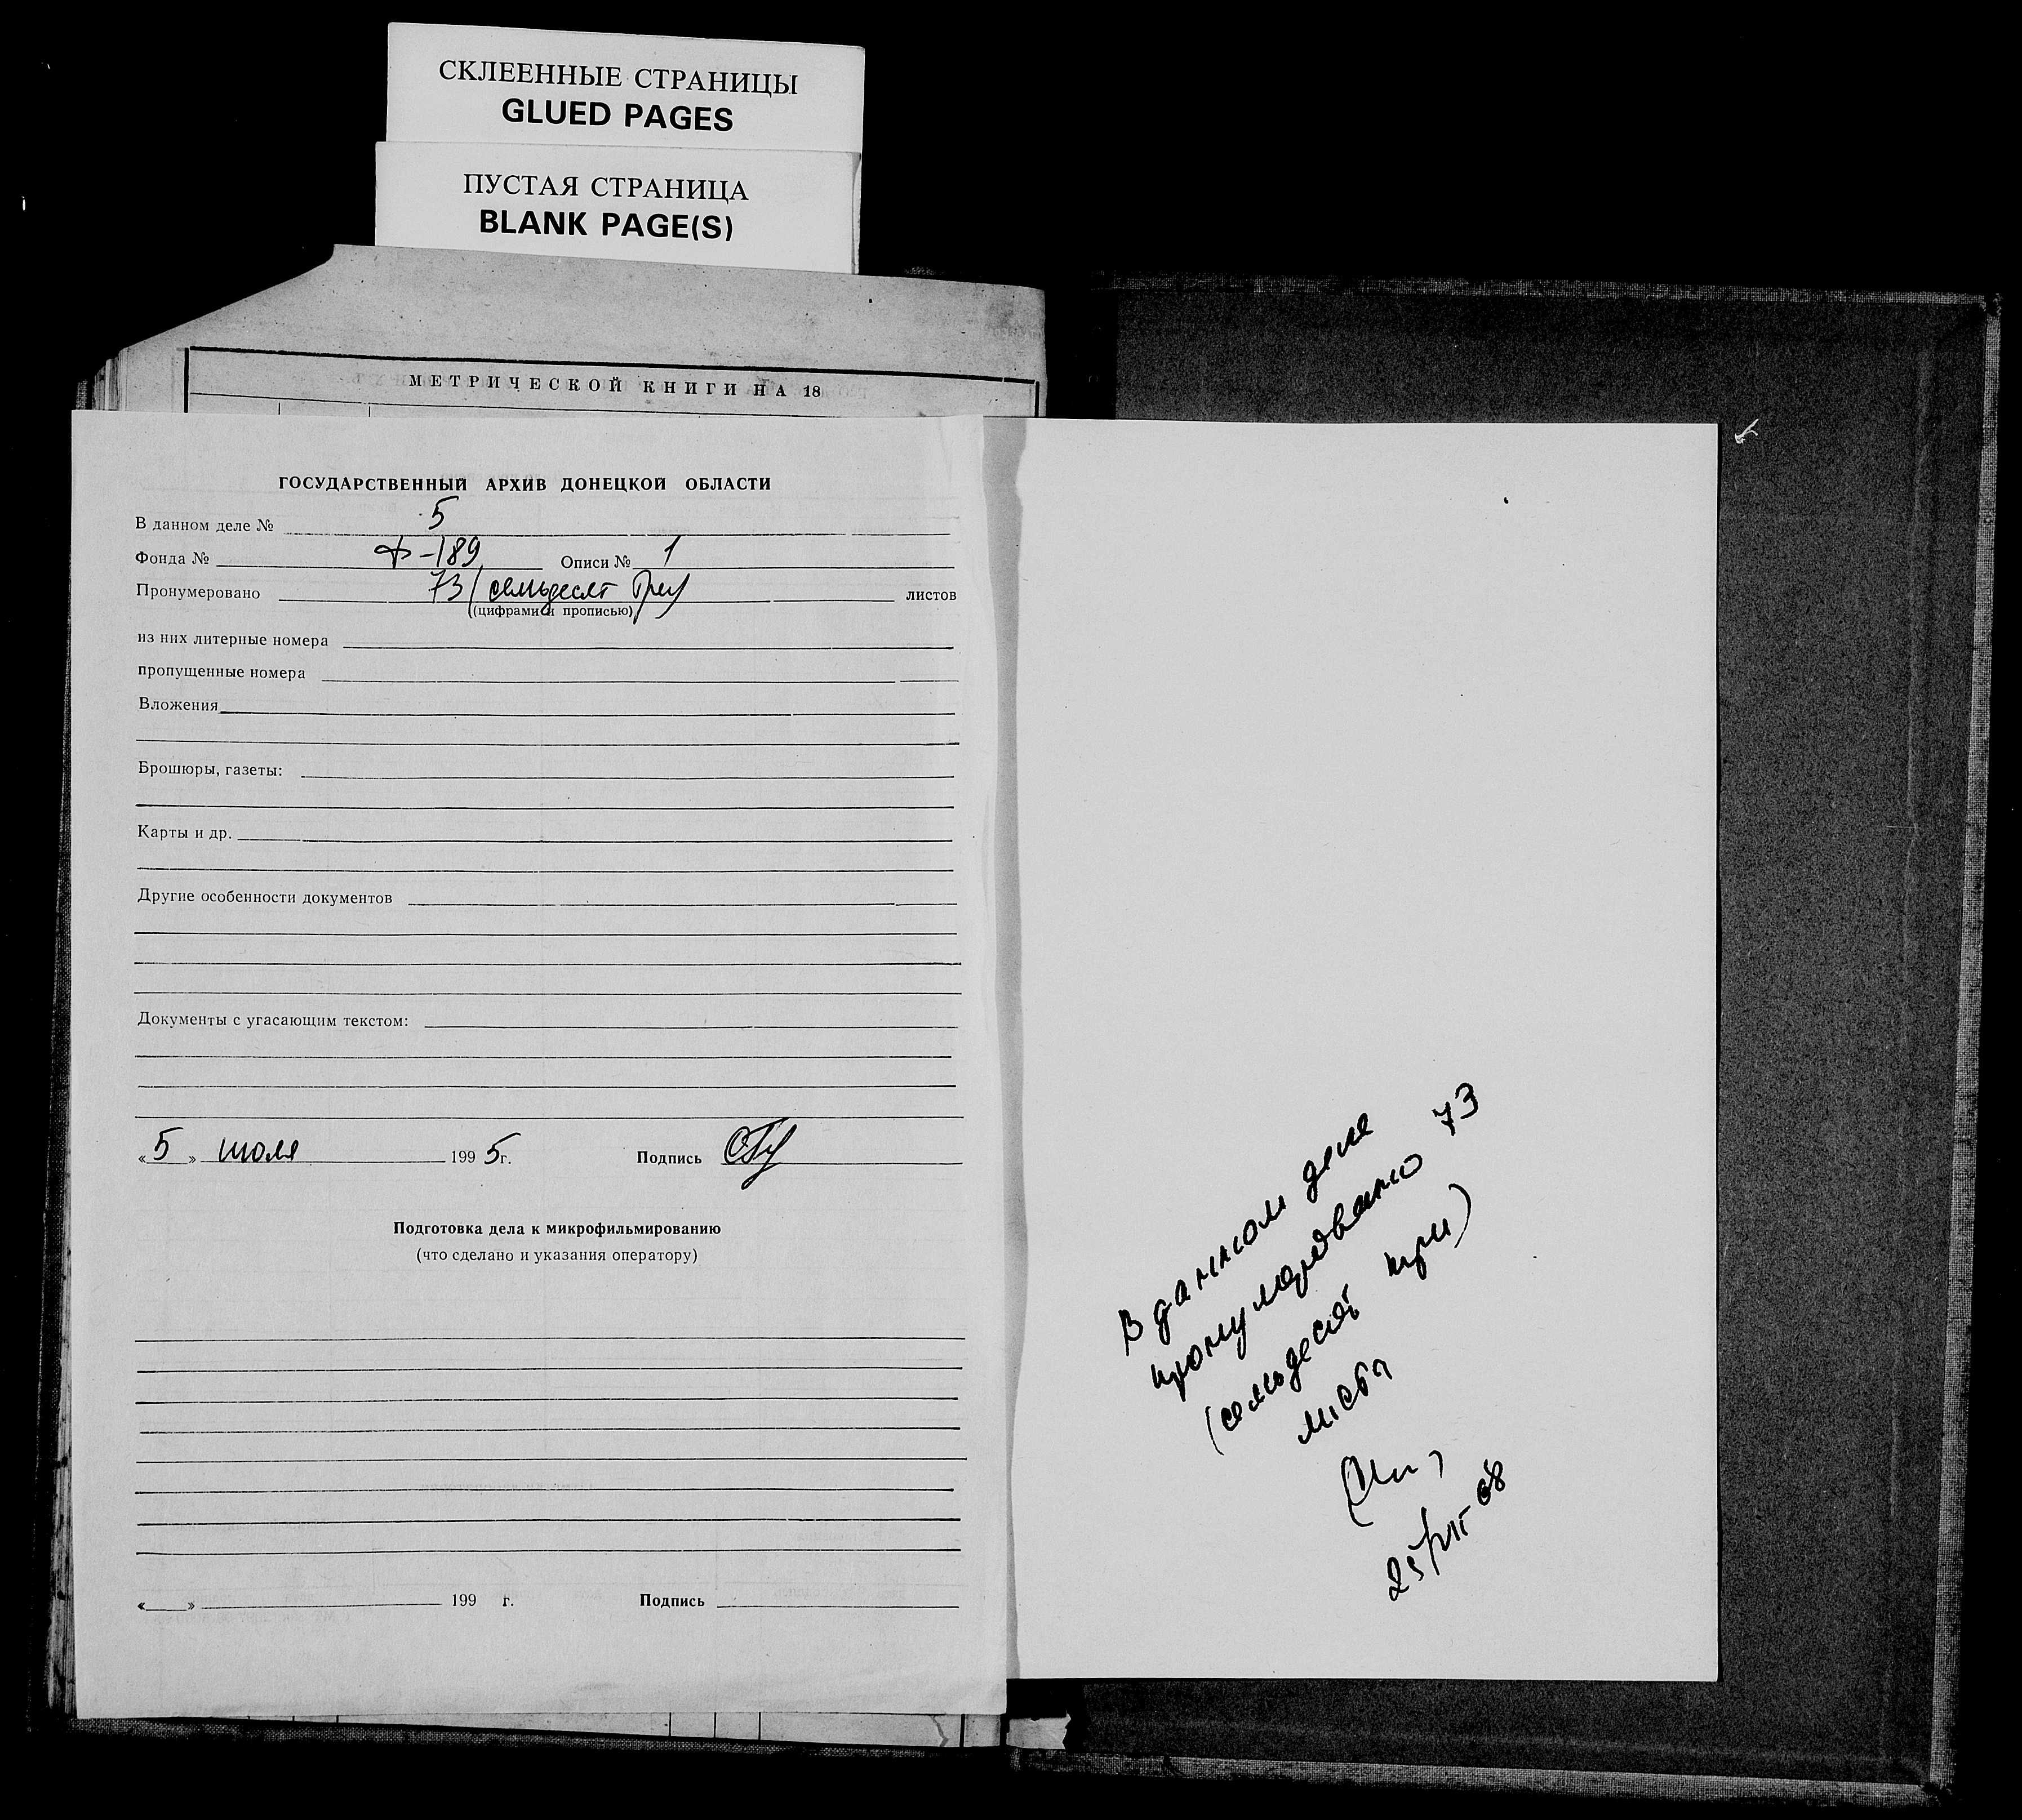 СКЛЕЕННЫЕ СТРАНИЦЫ
GLUED PAGES
ПУСТАЯ СТРАНИЦА
BLANK PAGE(S)
МЕТРИЧЕСКОЙ КНИГИ НА 18
ГОСУДАРСТВЕННЫЙ АРХИВ ДОНЕЦКОЙ ОБЛАСТИ
В данном деле № 5
Фонда № Ф-189 Описи № 1
Пронумеровано 73 (семьдесят три) листов
(цифрами и прописью)
из них литерные номера
пропущенные номера
Вложения
Брошюры, газеты:
Карты и др.
Другие особенности документов
Документы с угасающим текстом:
«5» июля 1995 г. Подпись
Подготовка дела к микрофильмированию
(что сделано и указания оператору)
« » 199 г. Подпись
В данном деле
пронумеровано 73
(семьдесят три)
листа